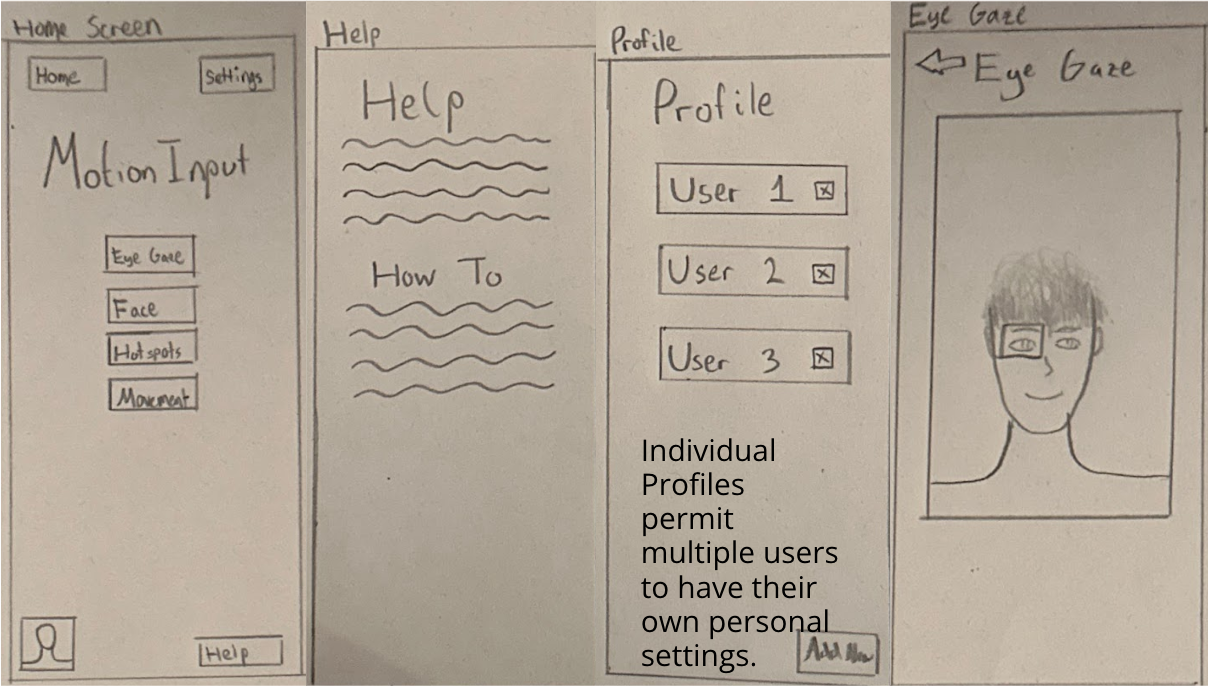 Home Screen
Home
Settings
Motion Input
Eye Gaze
Face
Hotspots
Movement
Help
Help
Help
How To
Profile
Profile
User 1
User 2
User 3
Individual
Profiles
permit
multiple users
to have their
own personal
settings.
Add New
Eye Gaze
Eye Gaze